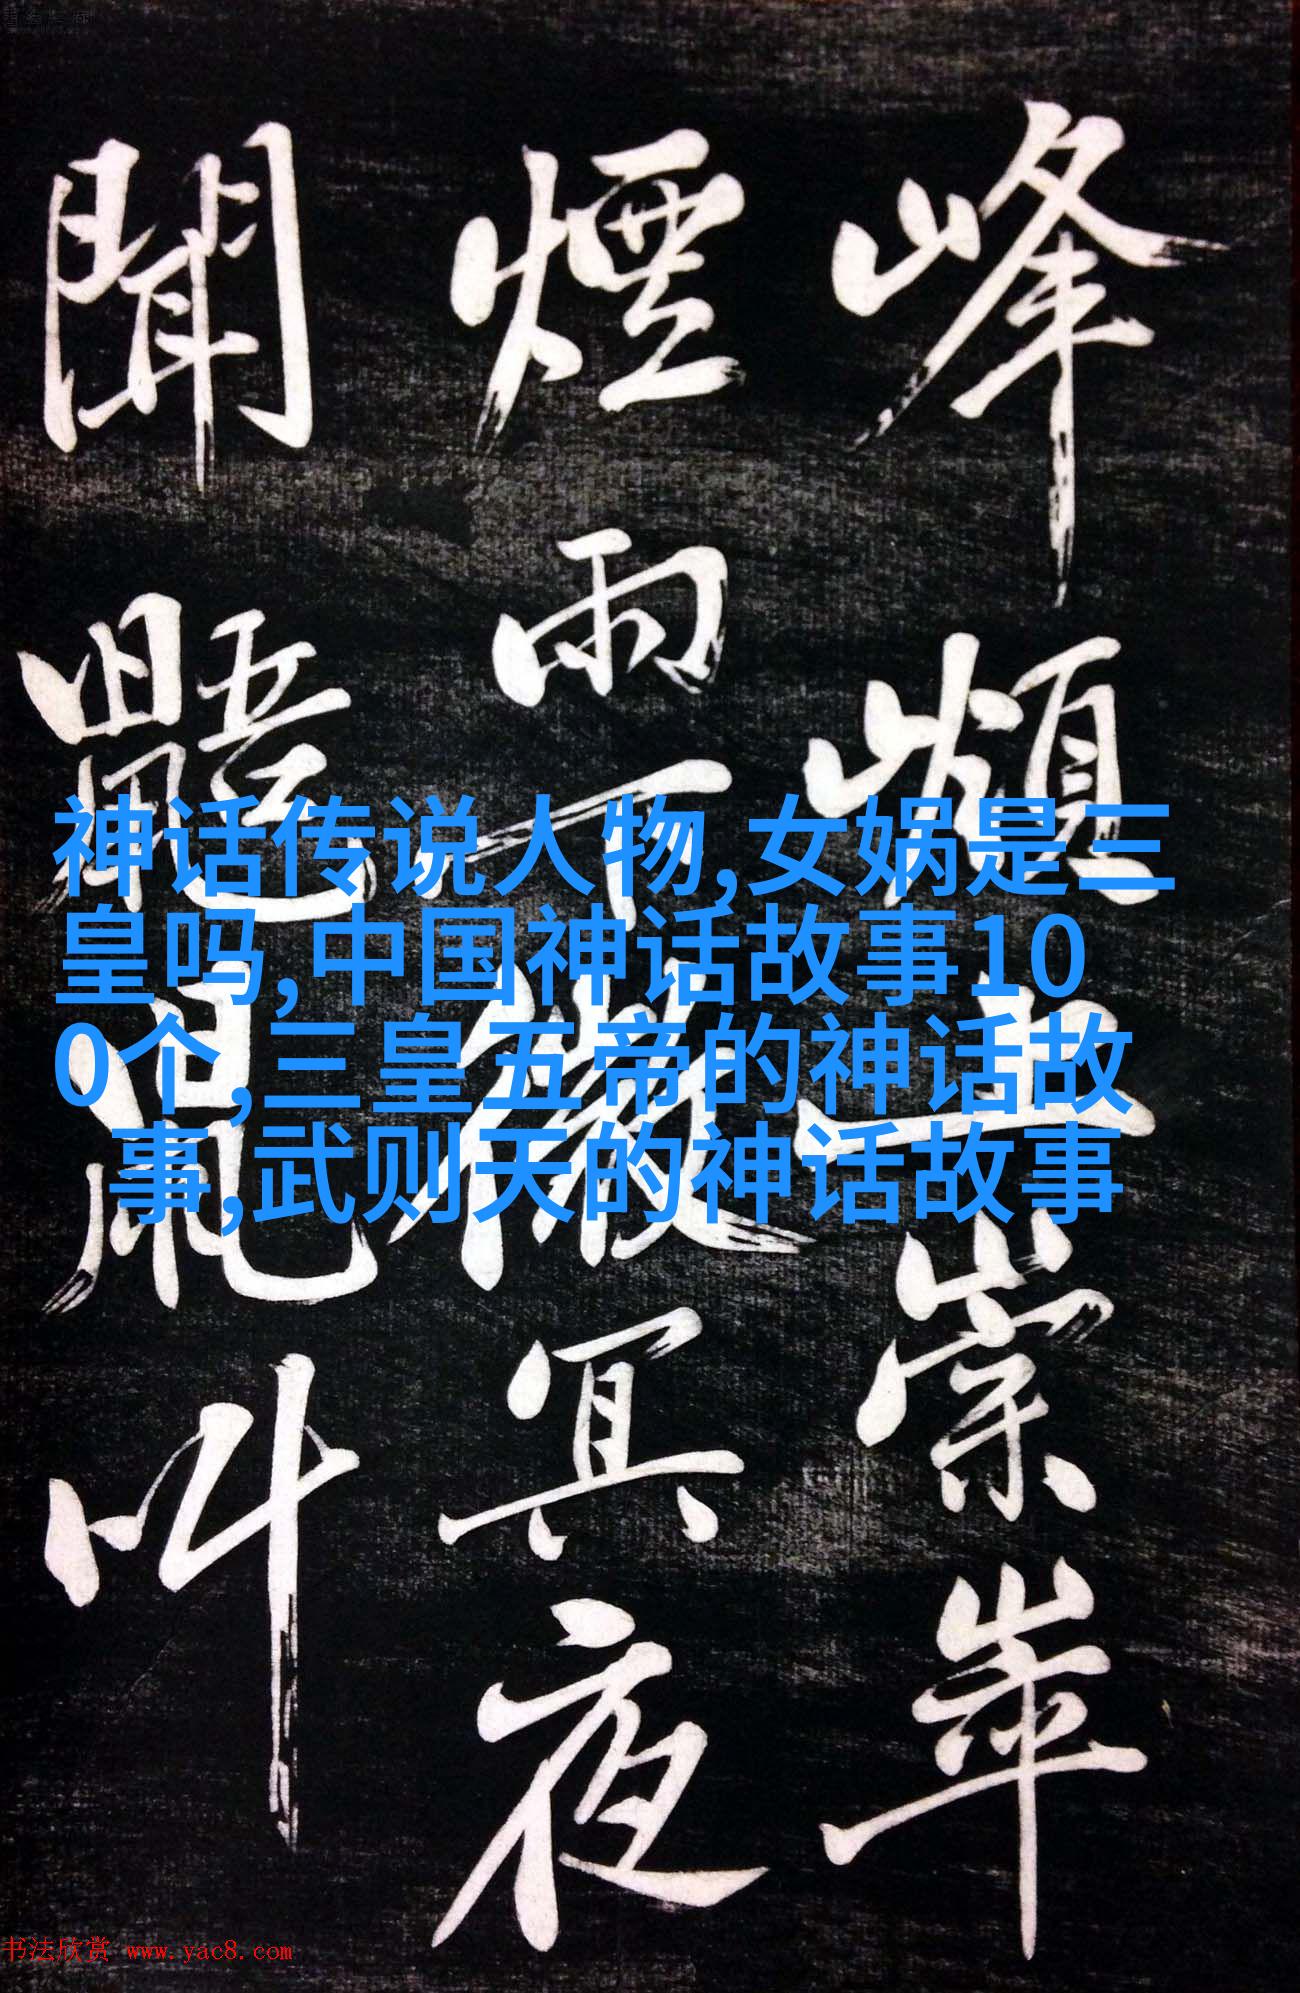 峰上崇崒
煙雨下微冥夜
聞鼯鼠叫
神话传说人物,女娲是三
皇吗,中国神话故事10
0个,三皇五帝的神话故
事,武则天的神话故事
书法欣赏 www.yac8.com